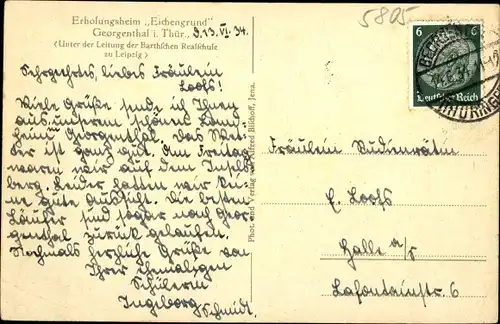 Erholungsheim „Eichengrund"
Georgenthal i. Thür., d. 13. VI. 34.
(Unter der Leitung der Barthschen Realschule
zu Leipzig)
Sehrgeehrtes, liebes Fräulein
Loofs!
Viele Grüße sende ich Ihnen
aus unserem schönen Land-
heim Georgenthal. Das Wet-
ter ist ganz gut. Am Freitag
waren wir auf dem Insels-
berg. Leider hatten wir kei-
ne gute Aussicht. Die besten
Läufer sind sogar nach Geor-
genthal zurück gelaufen.
Nochmals herzliche Grüße von
Ihrer ehemaligen
Schülerin
Ingeborg Schmidt.
Phot. und Verlag von Alfred Bischoff, Jena.
5805
6 6
Deutsches Reich
Fräulein Studienrätin
E. Loofs
Halle a/S
Lafontainstr. 6